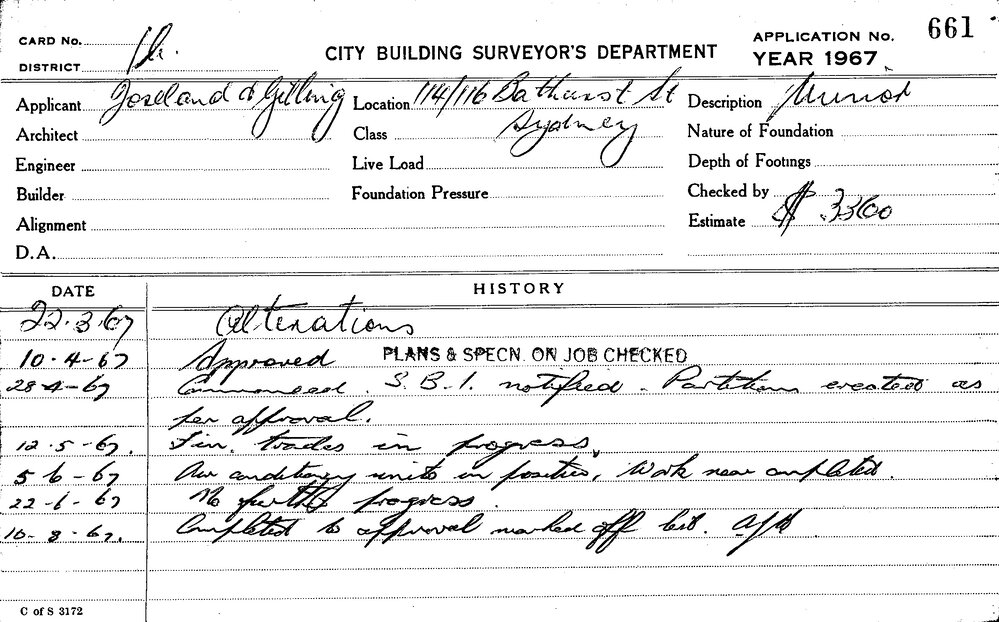 CARD No. 1b.
DISTRICT
CITY BUILDING SURVEYOR'S DEPARTMENT
APPLICATION No. 661
YEAR 1967
Applicant Joseland & Gilling
Location 114/116 Bathurst St
Sydney
Description Minor
Architect
Class
Nature of Foundation
Engineer
Live Load
Depth of Footings
Builder
Foundation Pressure
Checked by
Alignment
Estimate $ 3360
D.A.
DATE HISTORY
22.3.67 Alterations
10-4-67 Approved PLANS & SPECN. ON JOB CHECKED
28-4-67 Commenced. S.B.I. notified. Partitions erected as
per approval.
12-5-67. Fin. trades in progress.
5-6-67 Air conditioning units in position, Work near completed.
22-6-67 No further progress.
10-8-67. Completed to approval marked off
C of S 3172